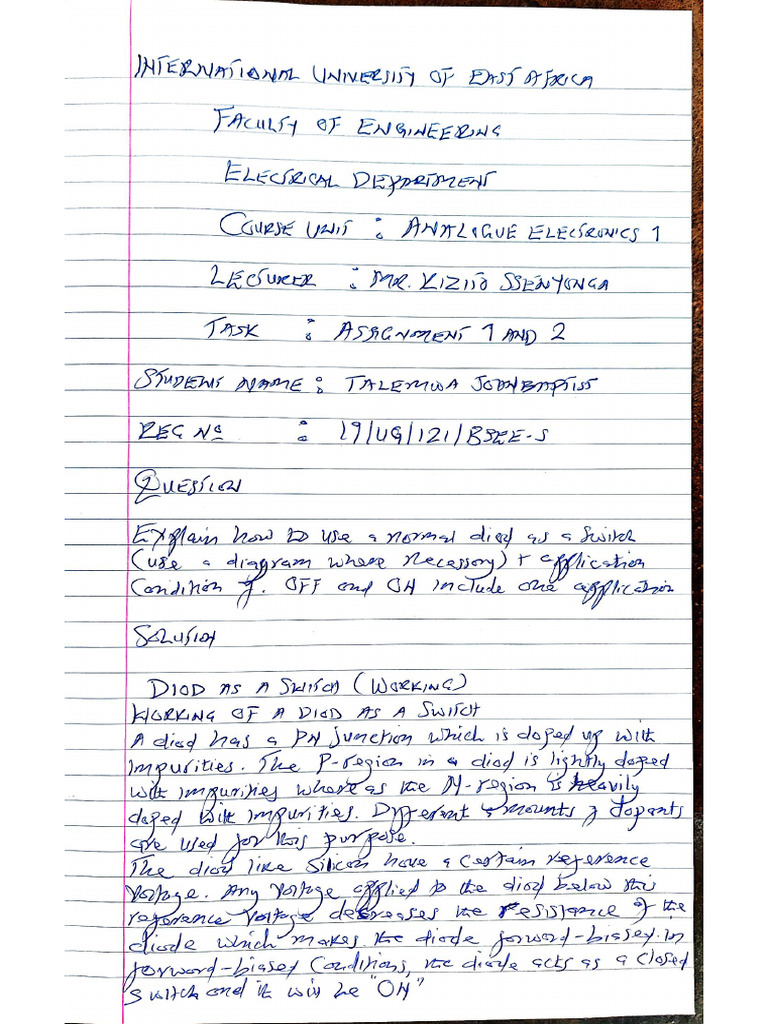 INTERNATIONAL UNIVERSITY OF EAST AFRICA
FACULTY OF ENGINEERING
ELECTRICAL DEPARTMENT
COURSE UNIT : ANALOGUE ELECTRONICS 1
LECTURER : MR. KIZITO SSENYONGA
TASK : ASSIGNMENT 1 AND 2
STUDENT NAME : TALEMWA JOHNBAPTIST
REG NO : 19/UG/121/BSEE-S
QUESTION
Explain how to use a normal diod as a switch
(use a diagram where necessory) + application
Condition of. OFF and ON include one application
SOLUTION
DIOD AS A SWITCH (WORKING)
WORKING OF A DIOD AS A SWITCH
A diod has a PN junction which is doped up with
impurities. The P-region in a diod is lightly doped
with impurities where as the N-region is heavily
doped with impurities. Different amounts of dopants
are used for this purpose.
The diod like Silicon have a certain reference
voltage. Any voltage applied to the diod below this
reference voltage decreases the resistance of the
diode which makes the diode forward-biased. In
forward-biased Conditions, the diode acts as a closed
switch and it will be "ON"